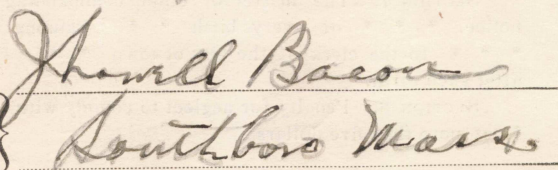 J Howell Bacon
Southboro Mass.